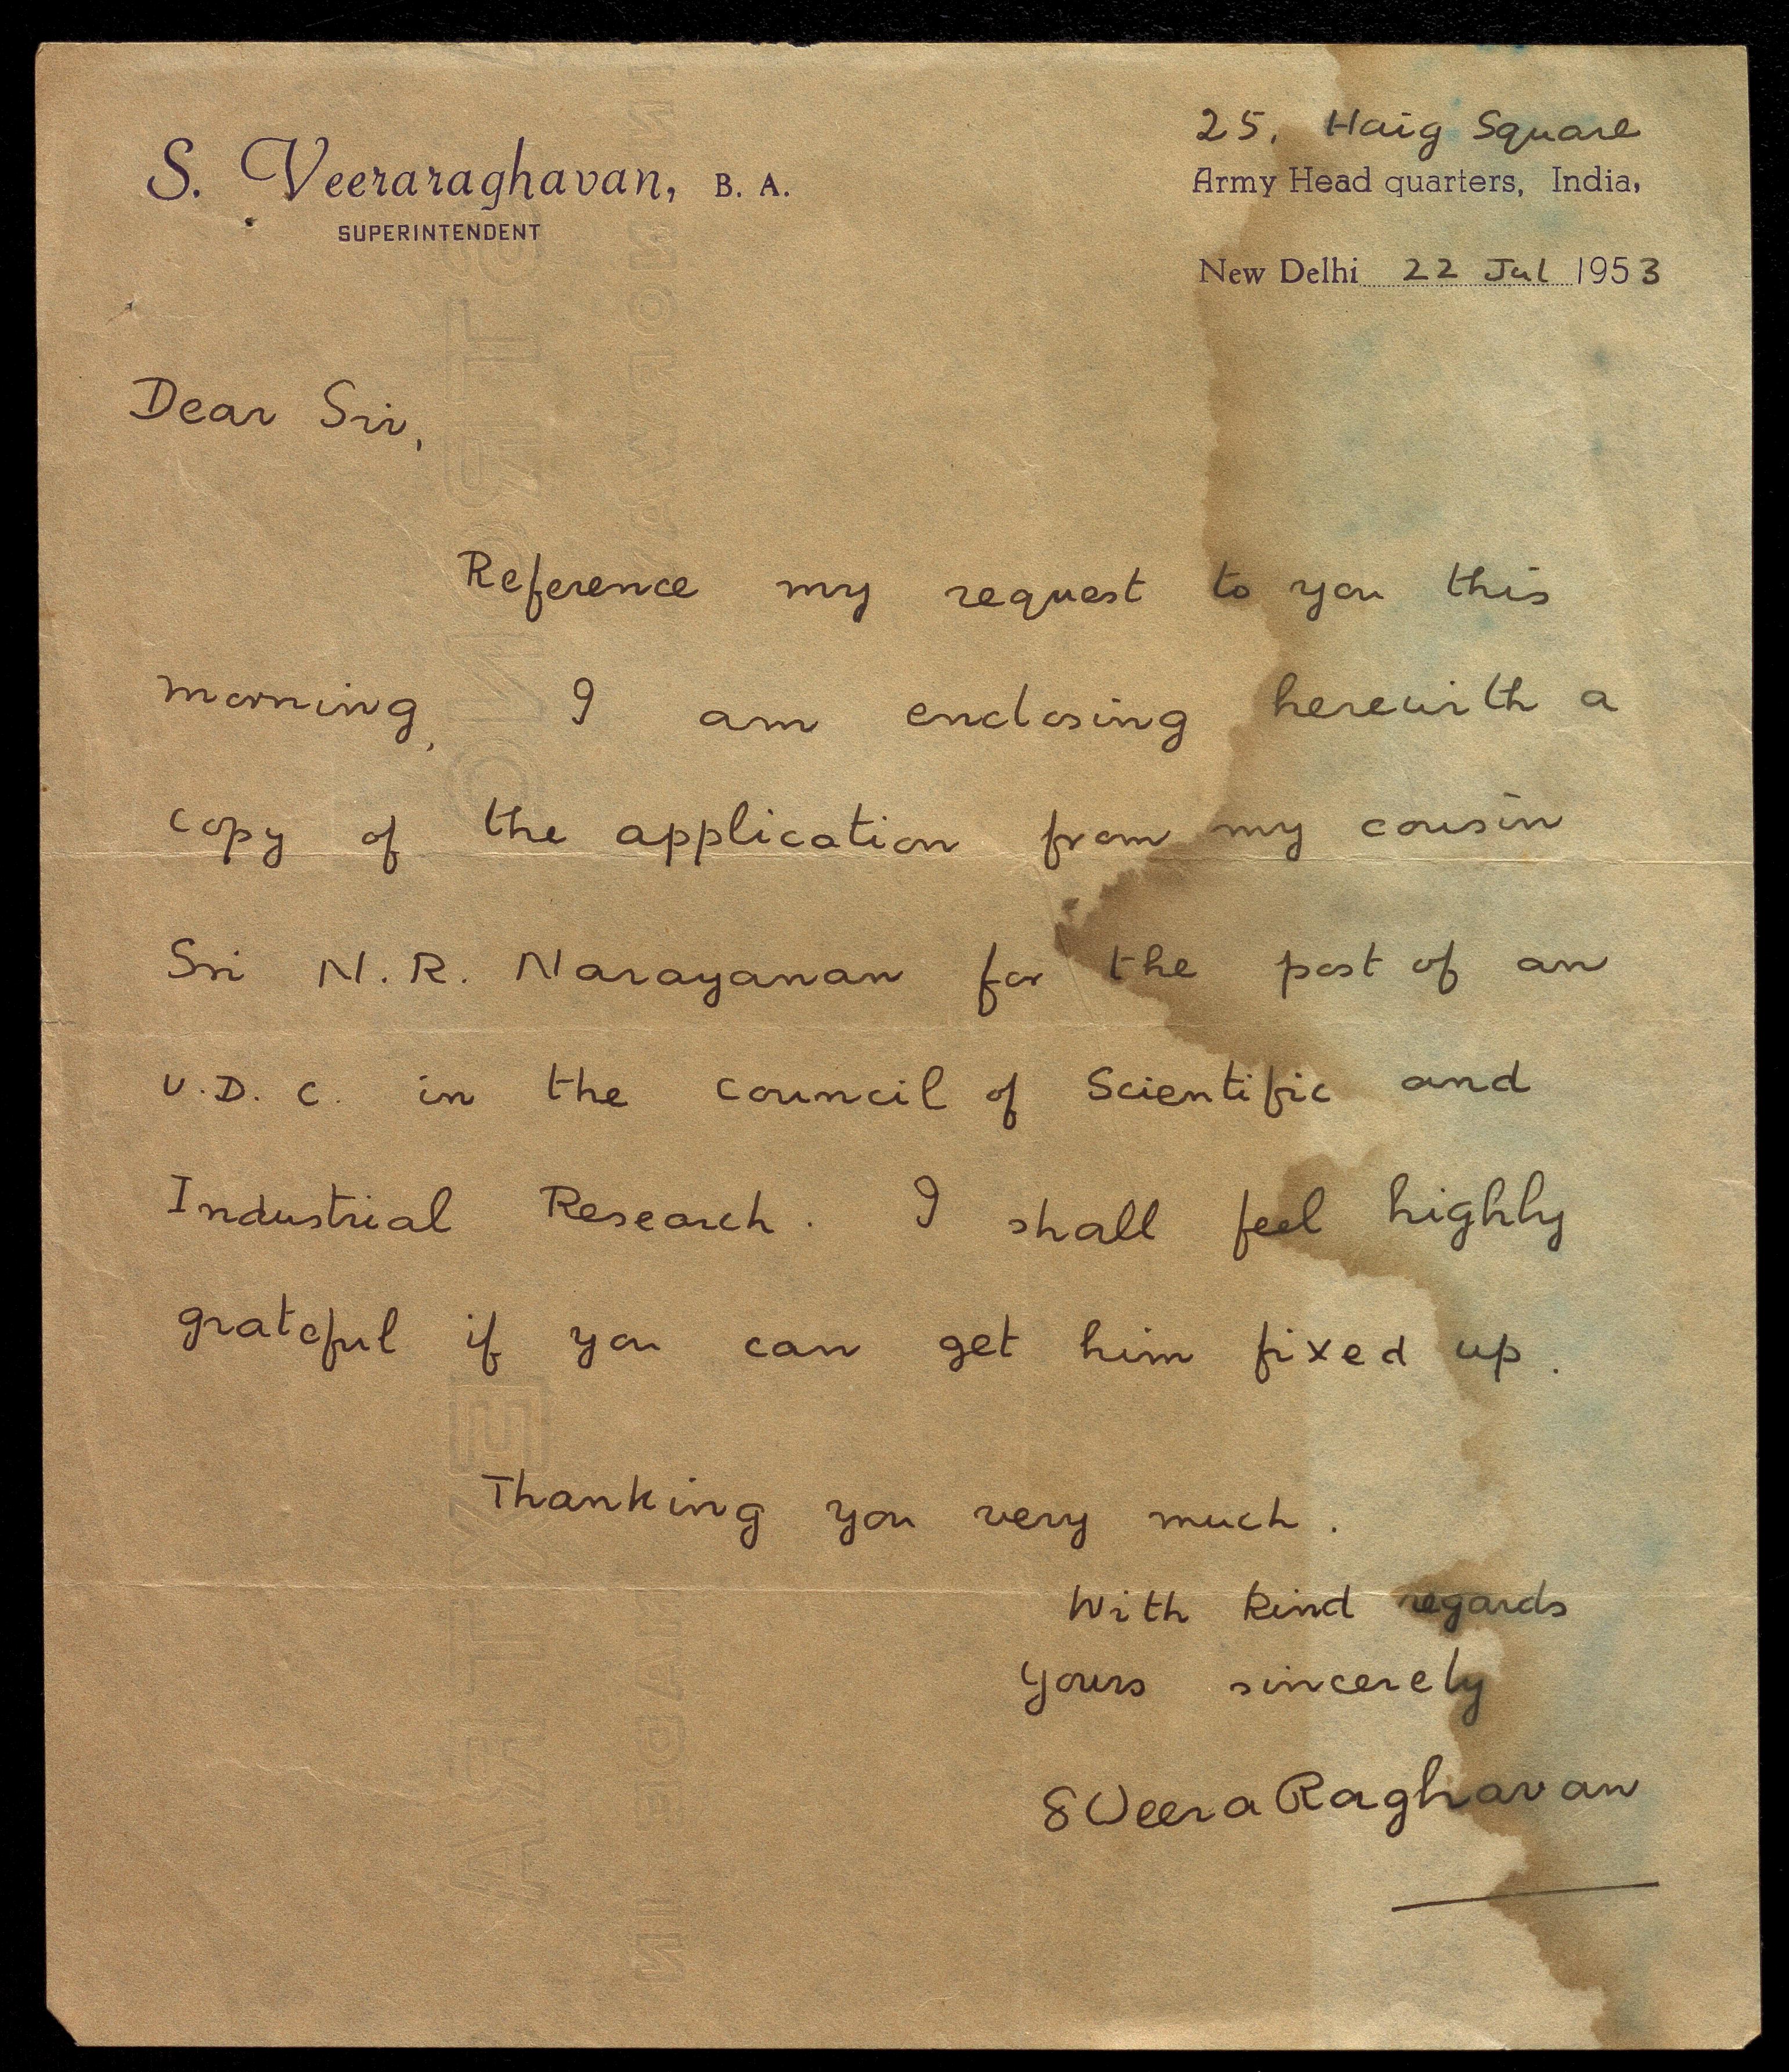 S. Veeraraghavan, B. A.
SUPERINTENDENT
25, Haig Square
Army Head quarters, India,
New Delhi 22 Jul 1953
Dear Sir,
Reference my request to you this
morning, I am enclosing herewith a
copy of the application from my cousin
Sri N. R. Narayanan for the post of an
U. D. C. in the Council of Scientific and
Industrial Research. I shall feel highly
grateful if you can get him fixed up.
Thanking you very much.
With kind regards
Yours sincerely
S Veera Raghavan